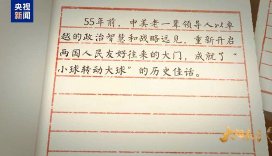 央视新闻
55年前，中美老一辈领导人以卓
越的政治智慧和战略远见，重新开启
两国人民友好往来的大门，成就了“
小球转动大球”的历史佳话。